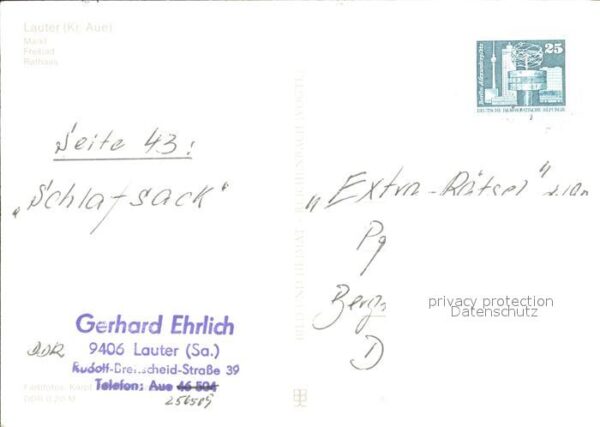 Lauter (Kr. Aue)
Markt
Freibad
Rathaus
25
DEUTSCHE DEMOKRATISCHE REPUBLIK
Seite 43:
„Schlafsack“
„Extra-Rätsel“
Pg
D
privacy protection
Datenschutz
BILD UND HEIMAT
Gerhard Ehrlich
9406 Lauter (Sa.)
Rudolf-Breitscheid-Straße 39
Telefon: Aue 46 504
DDR
Farbfotos:
DDR 0,20 M